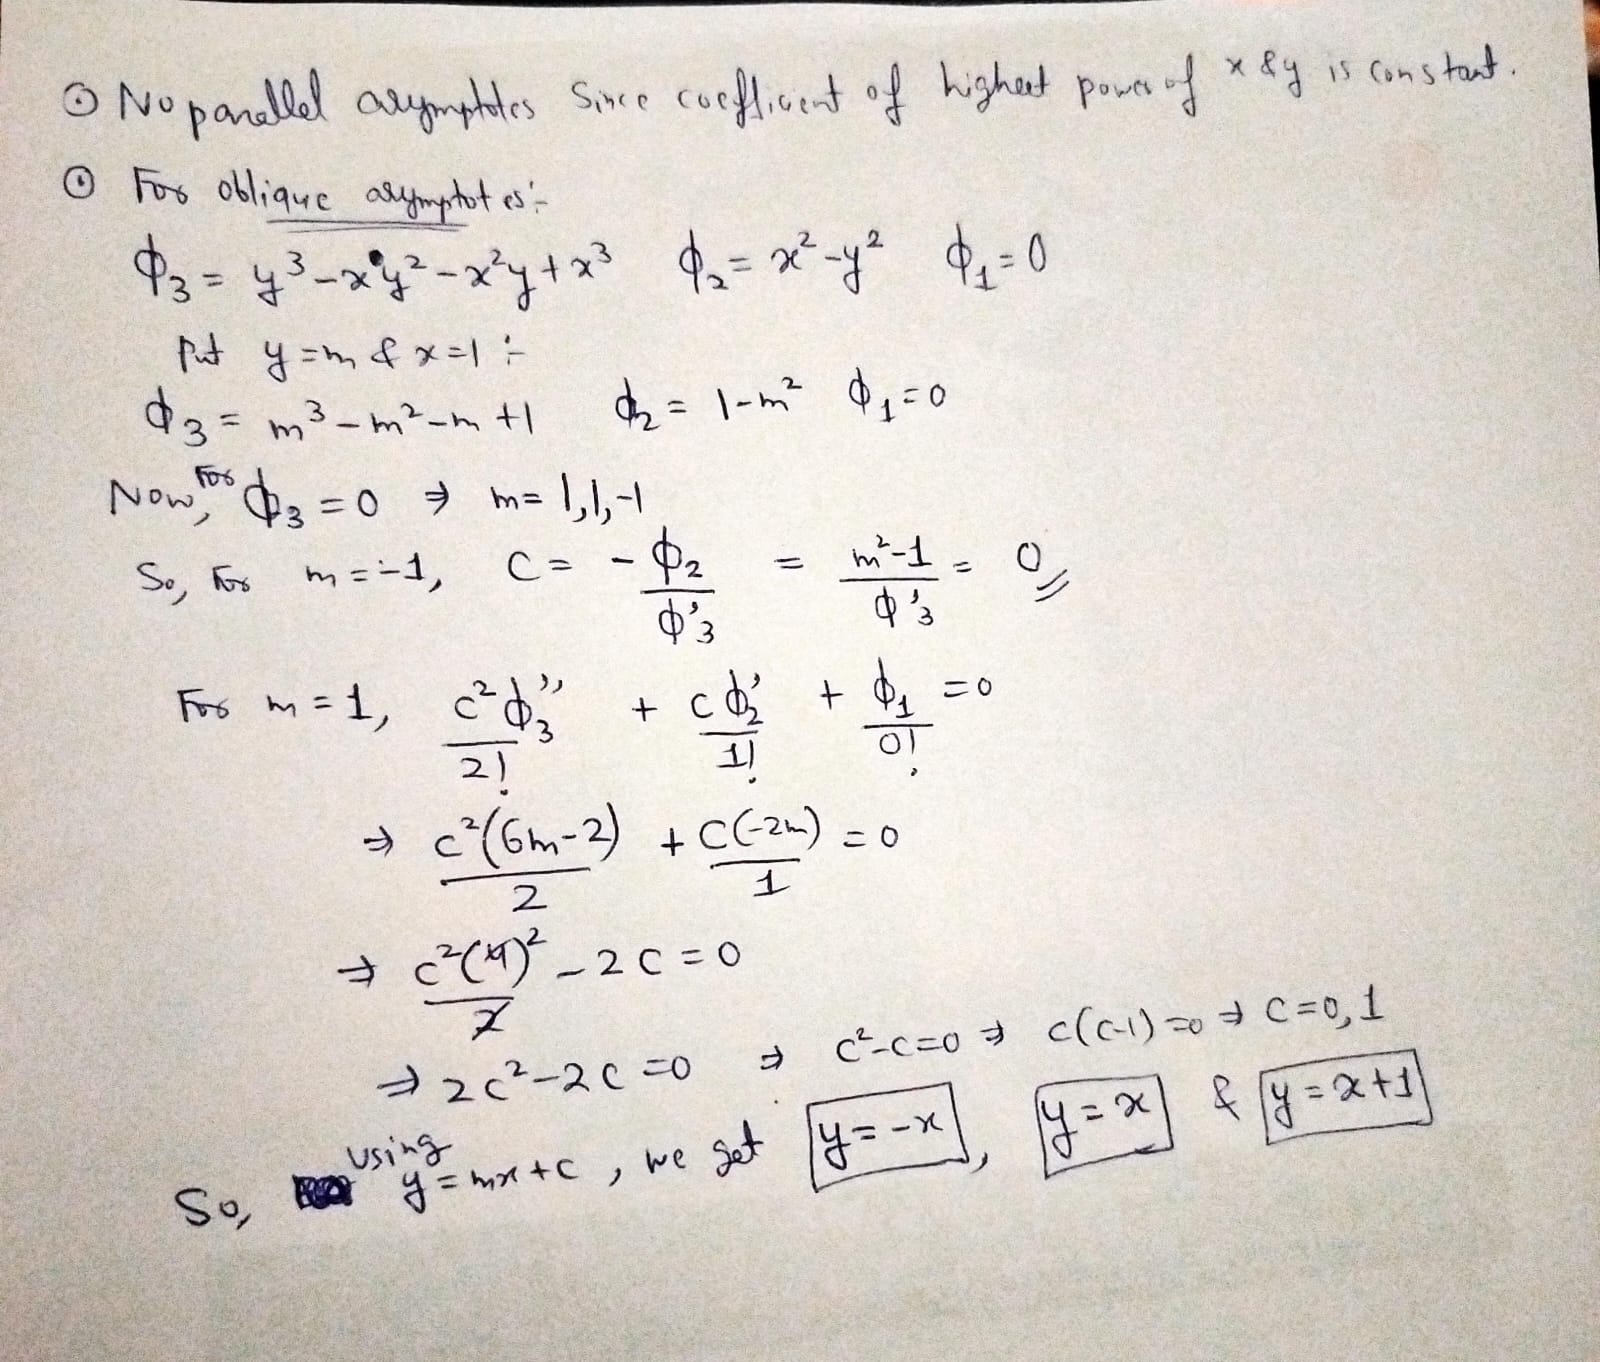 ⊙ No parallel asymptotes Since coefficient of highest power of x & y is constant.
⊙ For oblique asymptotes:-
ϕ₃ = y³ - xy² - x²y + x³   ϕ₂ = x² - y²   ϕ₁ = 0
Put y = m & x = 1 :-
ϕ₃ = m³ - m² - m + 1   ϕ₂ = 1 - m²   ϕ₁ = 0
Now, For ϕ₃ = 0 ⇒ m = 1, 1, -1
So, For m = -1, C = -ϕ₂/ϕ'₃ = (m² - 1)/ϕ'₃ = 0
For m = 1, c²ϕ₃''/2! + cϕ₂'/1! + ϕ₁/0! = 0
⇒ c²(6m-2)/2 + C(-2m)/1 = 0
⇒ c²(4)²/2 - 2C = 0
⇒ 2c² - 2C = 0 ⇒ c² - c = 0 ⇒ c(c-1) = 0 ⇒ C = 0, 1
So, using y = mx + c, we get y = -x, y = x & y = x + 1